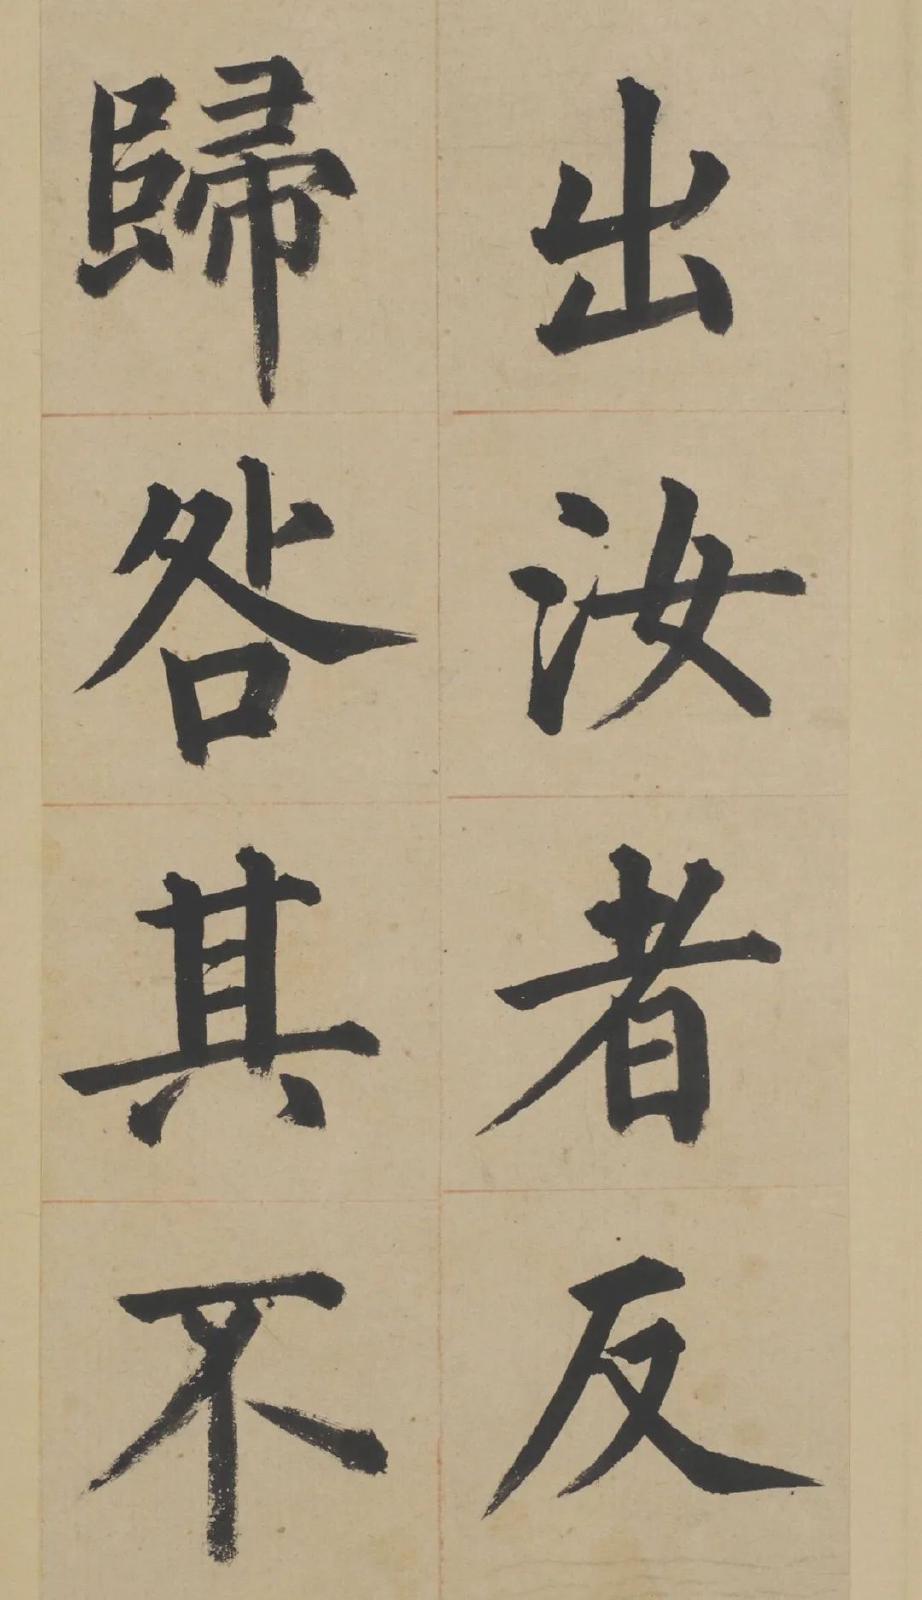 出汝者反
歸咎其不